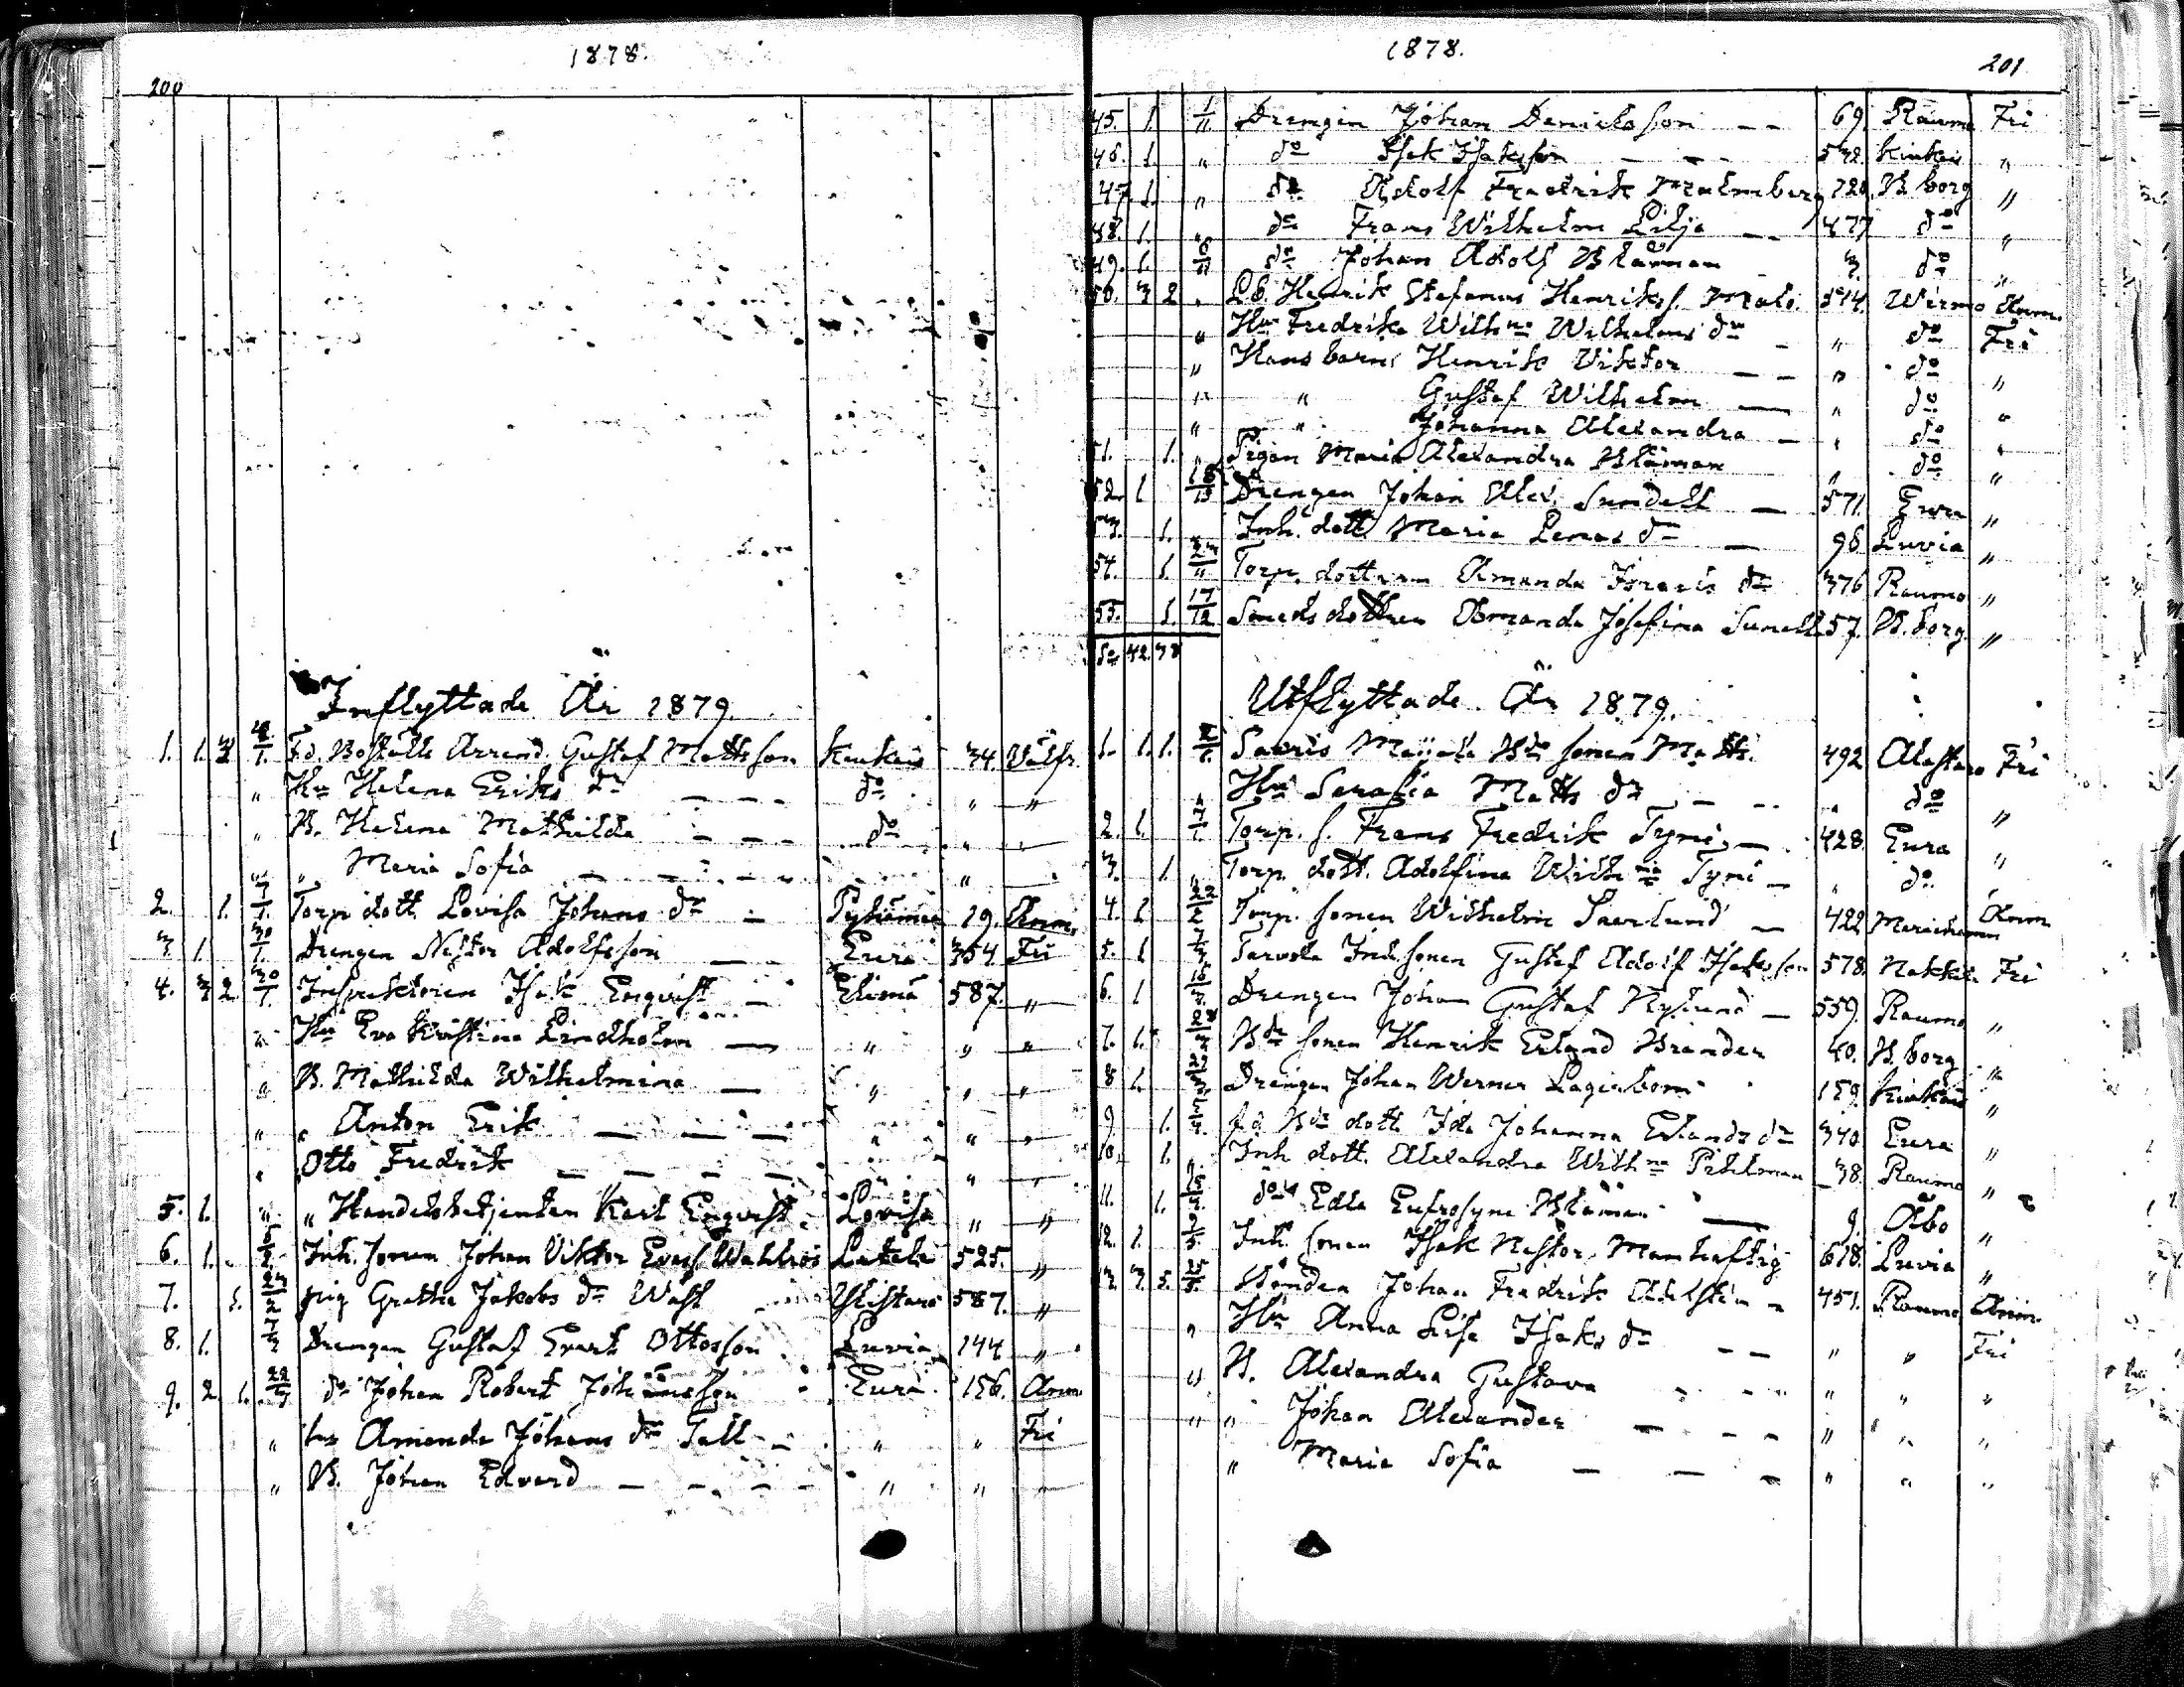 1878.
200
Inflyttade År 1879.
1. 1. 3 F.d. Boställs Arrend. Gustaf Mattsson Kiukais 34 Välfr.
" Hu Helena Eriks dr — — — do " "
" B. Helena Mathilda — — — do " "
" " Maria Sofia — — — — "
2. 1. 7/1. Torp. dott. Lovisa Johans dr — Pyhämaa 19. Anm.
3. 1. 30/1. Drengen Nestor Adolfsson — — Eura 354. Fri
4. 3 2. 30/1. Inspektoren Isak Enqvist — Elimä 587. "
" Hu Eva Kristina Lindholm — " " "
" B. Mathilda Wilhelmina — " " "
" " Anton Erik — — — " " "
" Otto Fredrik — — — — " "
5. 1. " " Handelsbetjenten Karl Enqvist Lovisa " "
6. 1. Inh. sonen Johan Viktor Wahlroos 525. "
7. 1. 23/2 pig Gretha Jakobs dr Wass 587. "
8. 1. Drengen Gustaf Evert Ottosson Luvia 144 "
9. 2. 1. 22/3 do Johan Robert Johansson Eura 156. Anm
" hu Amanda Johans dr Tall — " " Fri
" B. Johan Edvard — — — — " " "
1878.
201
45. 1. 1/11 Drengen Johan Danielsson — — 69. Raumo Fri
46. 1. " do Isak Isaksson — — — 532. Kiukais "
47. 1. " do Adolf Fredrik Malmberg 720. B.borg "
48. 1. " do Frans Wilhelm Lilja — — 477 do "
49. 1. do Johan Adolf Blåman 3. do "
50. 3 2 " Henrik Stefanus Henrikss. Malo. 514. Wirmo Anm.
" Hu Fredrika Wilhna Wilhelms dr — " do Fri
" Hans barn: Henrik Viktor — — " do "
" " Gustaf Wilhelm — " do "
" " Johanna Alexandra — " do "
51. 1. " Pigan Maria Alexandra Blåman " do "
52. 1 Drengen Johan Alex. Sundell — 571.
53. 1. Inh. dott. Maria Lenas dr — 98. Luvia "
54. 1. Torp. dottren Amanda Isaks dr 376 Raumo "
55. 1. 17/12 Smeds dottren Amanda Josefina Sunell 57. B.borg. "
Sa 42. 38
Utflyttade År 1879.
1. 1. 1. Bde sonen Matts. 492 Alastaro Fri
" Hu Serafia Matts dr — — " do "
2. 1. 7/1. Torp. s. Frans Fredrik Tyni — 428. Eura "
3. 1 " Torp. dott. Adolfina Wilhna Tyni — " do "
4. 1. 22/2 Torp. sonen Wilhelm Saerlund — 422 Anm
5. 1 7/3 Inh. sonen Gustaf Adolf Isaksson 578. Nakkila Fri
6. 1 Drengen Johan Gustaf Nylund — 559. Raumo "
7. 1. Bde sonen Henrik Erland Brander 40. B.borg "
8 1. Drengen Johan Werner Lagerbom 159. Kiukais "
9. 1. f.d. Bde dott. Ida Johanna Erlands dr 340. Eura "
10. 1. Inh. dott. Alexandra Wilhna Pihlman 38. Raumo "
11. 1. do Edla Eufrosyne Blåman — 9. Åbo "
12. 1. Inh. sonen Isak Nestor Manhaftig 618. Luvia "
13. 3. 5. 25/5. Bonden Johan Fredrik Adelstin — 451. Raumo Anm.
" Hu Anna Lisa Isaks dr — — " " Fri
" B. Alexandra Gustava — — " " "
" " Johan Alexander — — — " " "
" Maria Sofia — — — " " "